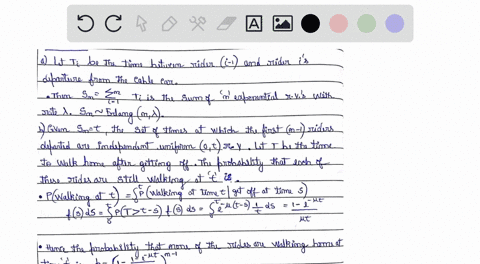 a) Let Ti be the time between rider (i-1) and rider i's
departure from the cable car.
• Then Sm = Σ_{i=1}^{m} Ti is the sum of 'm' exponential r.v.'s with
rate λ. Sm ~ Erlang (m, λ).
b) Given Sm = t, the set of times at which the first (m-1) riders
departed are independent uniform (0,t) r.v. Let T be the time
to walk home after getting off. The probability that each of
these riders are still walking at 't' is.
• P(Walking at t) = ∫₀ᵗ P(Walking at time t | got off at time s)
f(s) ds = ∫₀ᵗ P(T > t-s) f(s) ds = ∫₀ᵗ e^{-μ(t-s)} 1/t ds = (1-e^{-μt})/μt
• Hence the probability that none of the riders are walking home at